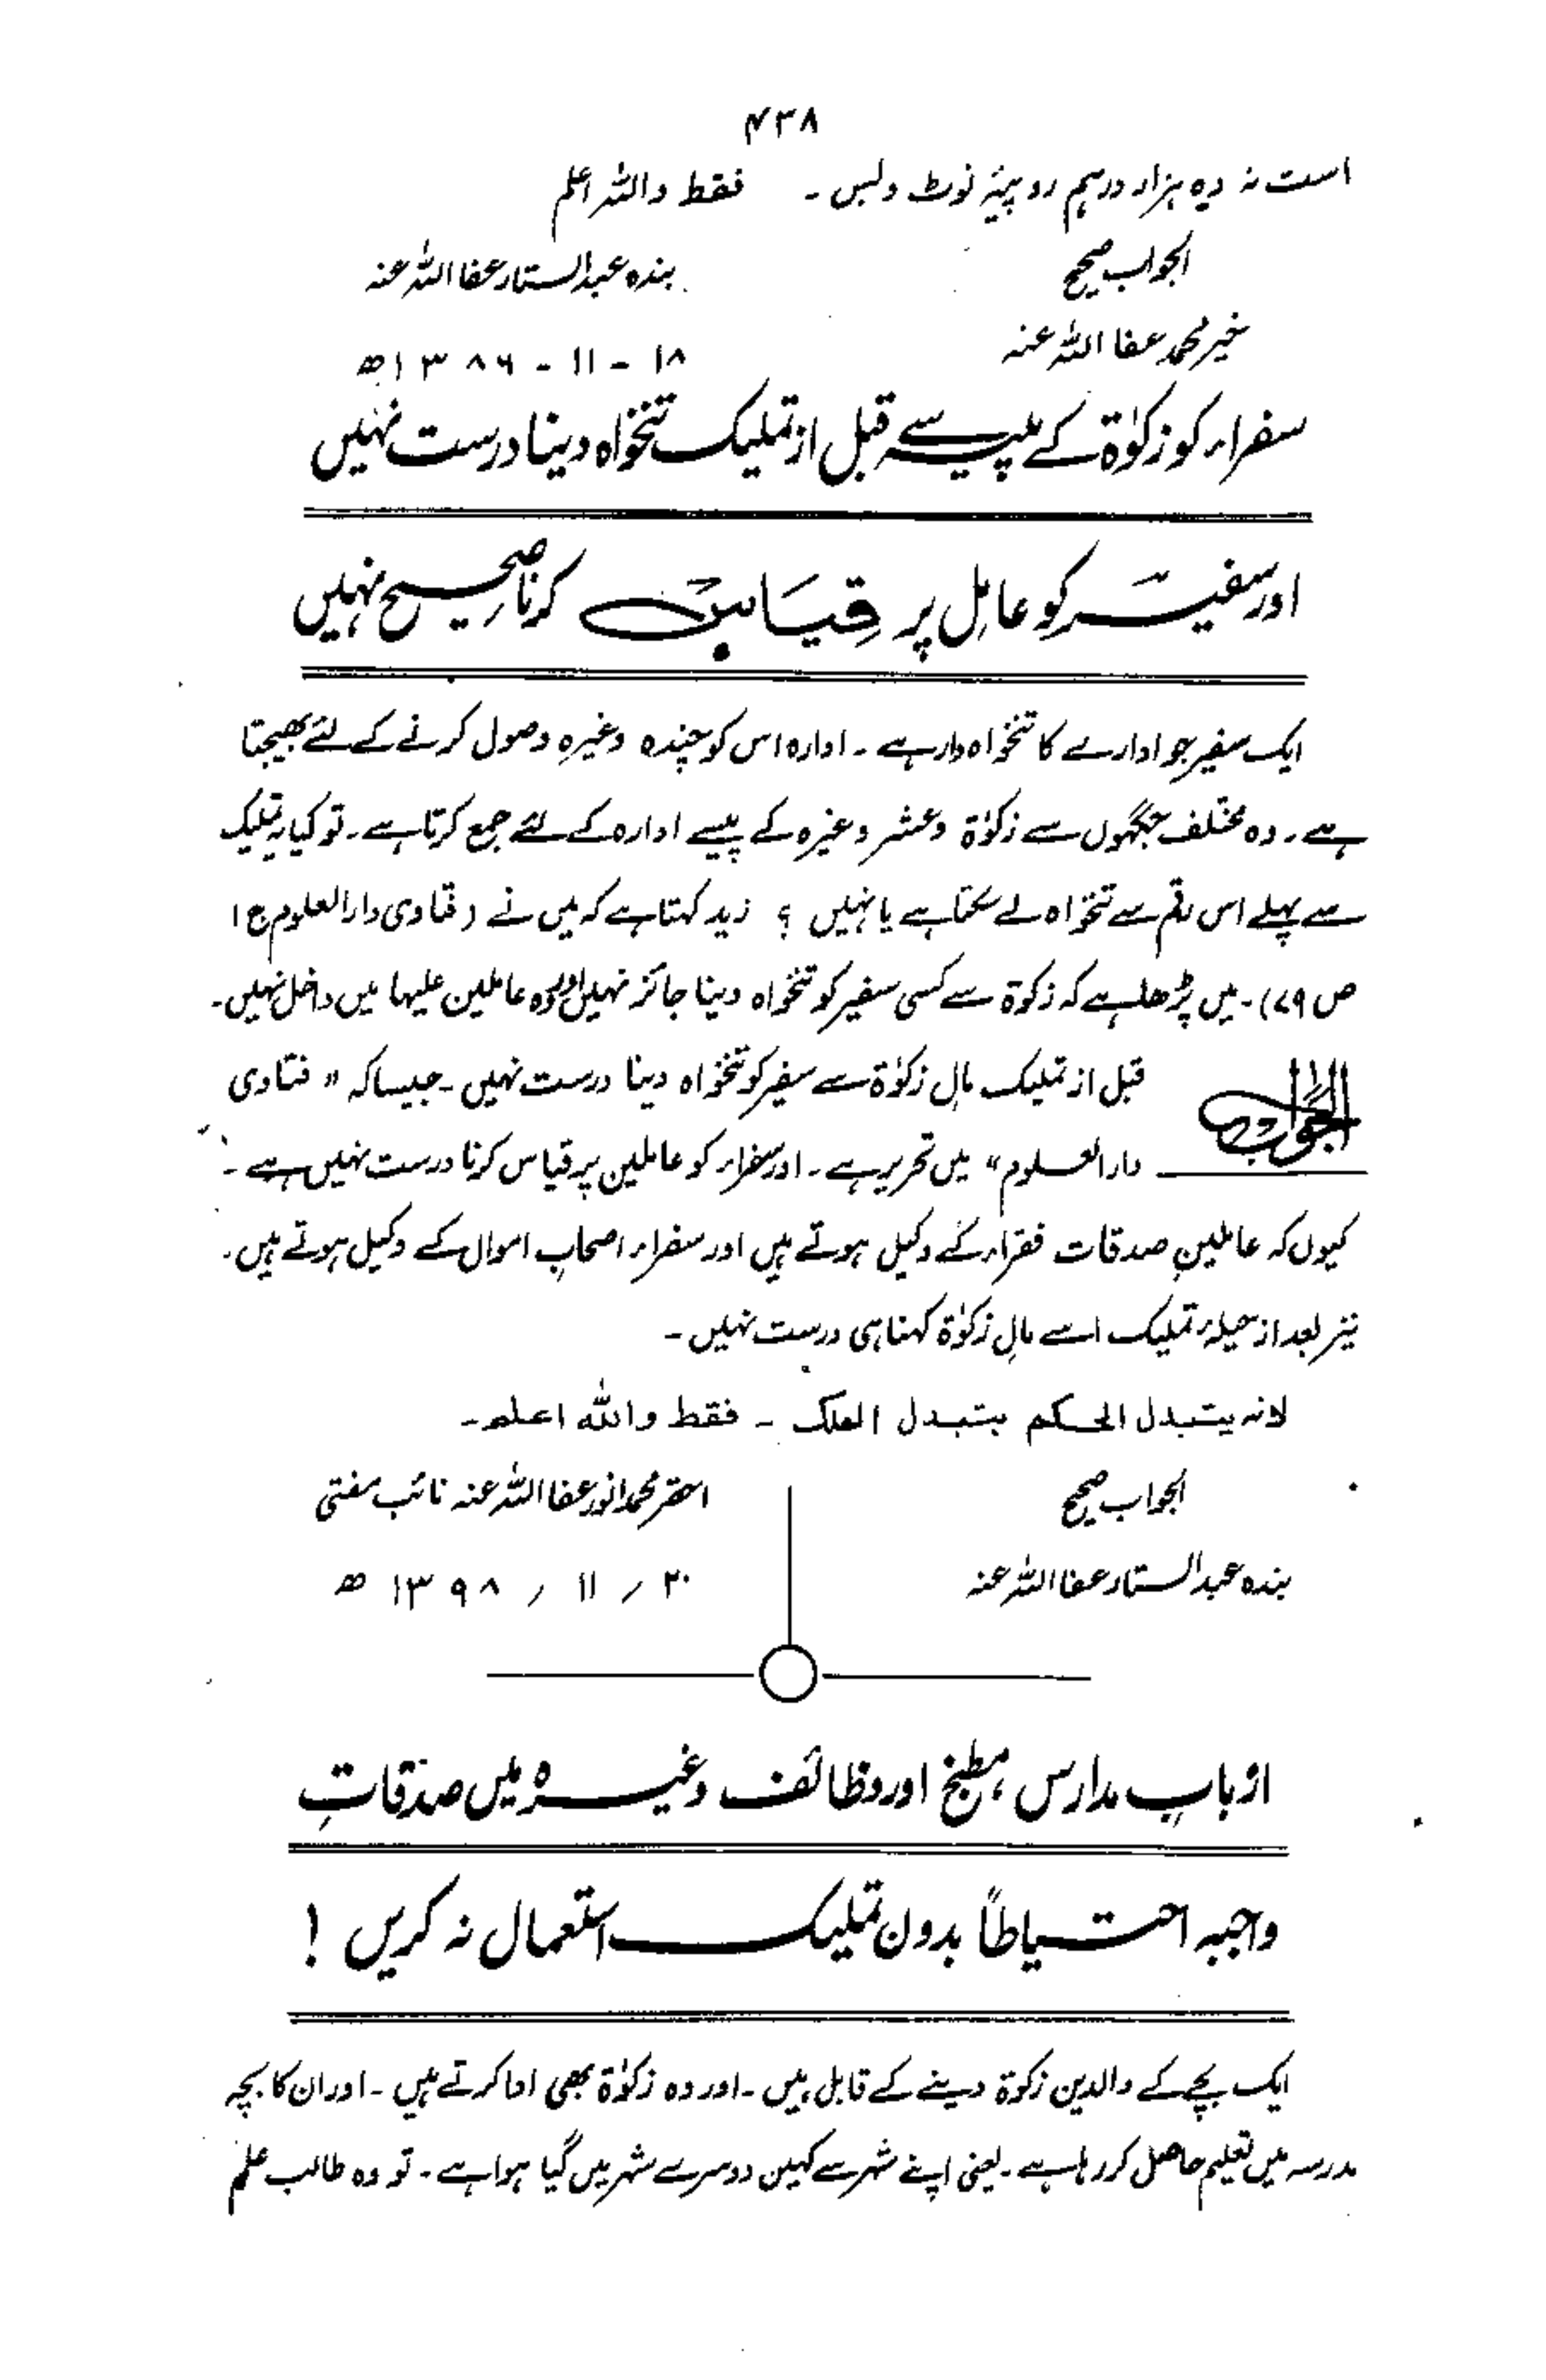 ۴۳۸
است نہ دہ ہزار درہم روپیۂ نوٹ ولبس ۔ فقط واللہ اعلم
الجواب صحیح
بندہ عبدالستار عفا اللہ عنہ
خیر محمد عفا اللہ عنہ
۱۸ - ۱۱ - ۱۳۸۶ھ
سفراء کو زکوٰۃ کے پیسے قبل از تملیک تنخواہ دینا درست نہیں
اور سفیر کو عامل پر قیاس کرنا صحیح نہیں
ایک سفیر جو ادارے کا تنخواہ دار ہے ۔ ادارہ اس کو چندہ وغیرہ وصول کرنے کے لئے بھیجتا
ہے ۔ وہ مختلف جگہوں سے زکوٰۃ وعشر وغیرہ کے پیسے ادارہ کے لئے جمع کرتا ہے ۔ تو کیا یہ تملیک
سے پہلے اس رقم سے تنخواہ لے سکتا ہے یا نہیں ؟ زید کہتا ہے کہ میں نے ( فتاوی دارالعلوم ج ۱
ص ۷۹) ۔ میں پڑھا ہے کہ زکوۃ سے کسی سفیر کو تنخواہ دینا جائز نہیں اور وہ عاملین علیہا میں داخل نہیں ۔
الجواب قبل از تملیک مالِ زکوٰۃ سے سفیر کو تنخواہ دینا درست نہیں ۔ جیسا کہ " فتاوی
دارالعلوم " میں تحریر ہے ۔ اور سفراء کو عاملین پر قیاس کرنا درست نہیں ہے ۔
کیوں کہ عاملینِ صدقات فقراء کے وکیل ہوتے ہیں اور سفراء اصحابِ اموال کے وکیل ہوتے ہیں ۔
نیز بعد از حیلہء تملیک اسے مالِ زکوٰۃ کہنا ہی درست نہیں ۔
لانہ یتبدل الحکم بتبدل الملک ۔ فقط واللہ اعلم ۔
الجواب صحیح
احقر محمد انور عفا اللہ عنہ نائب مفتی
بندہ عبدالستار عفا اللہ عنہ
۲۰ / ۱۱ / ۱۳۹۸ ھ
اربابِ مدارس ، مطبخ اور وظائف وغیرہ میں صدقاتِ
واجبہ احتیاطاً بدون تملیک استعمال نہ کریں !
ایک بچے کے والدین زکوۃ دینے کے قابل ہیں ۔ اور وہ زکوٰۃ بھی ادا کرتے ہیں ۔ اور ان کا بچہ
مدرسہ میں تعلیم حاصل کر رہا ہے ۔ یعنی اپنے شہر سے کہیں دوسرے شہر میں گیا ہوا ہے ۔ تو وہ طالب علم